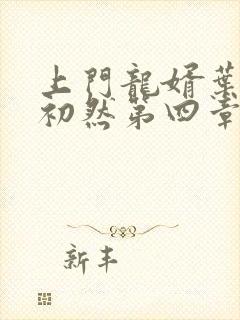 上門龍婿葉
初然第四章
新丰